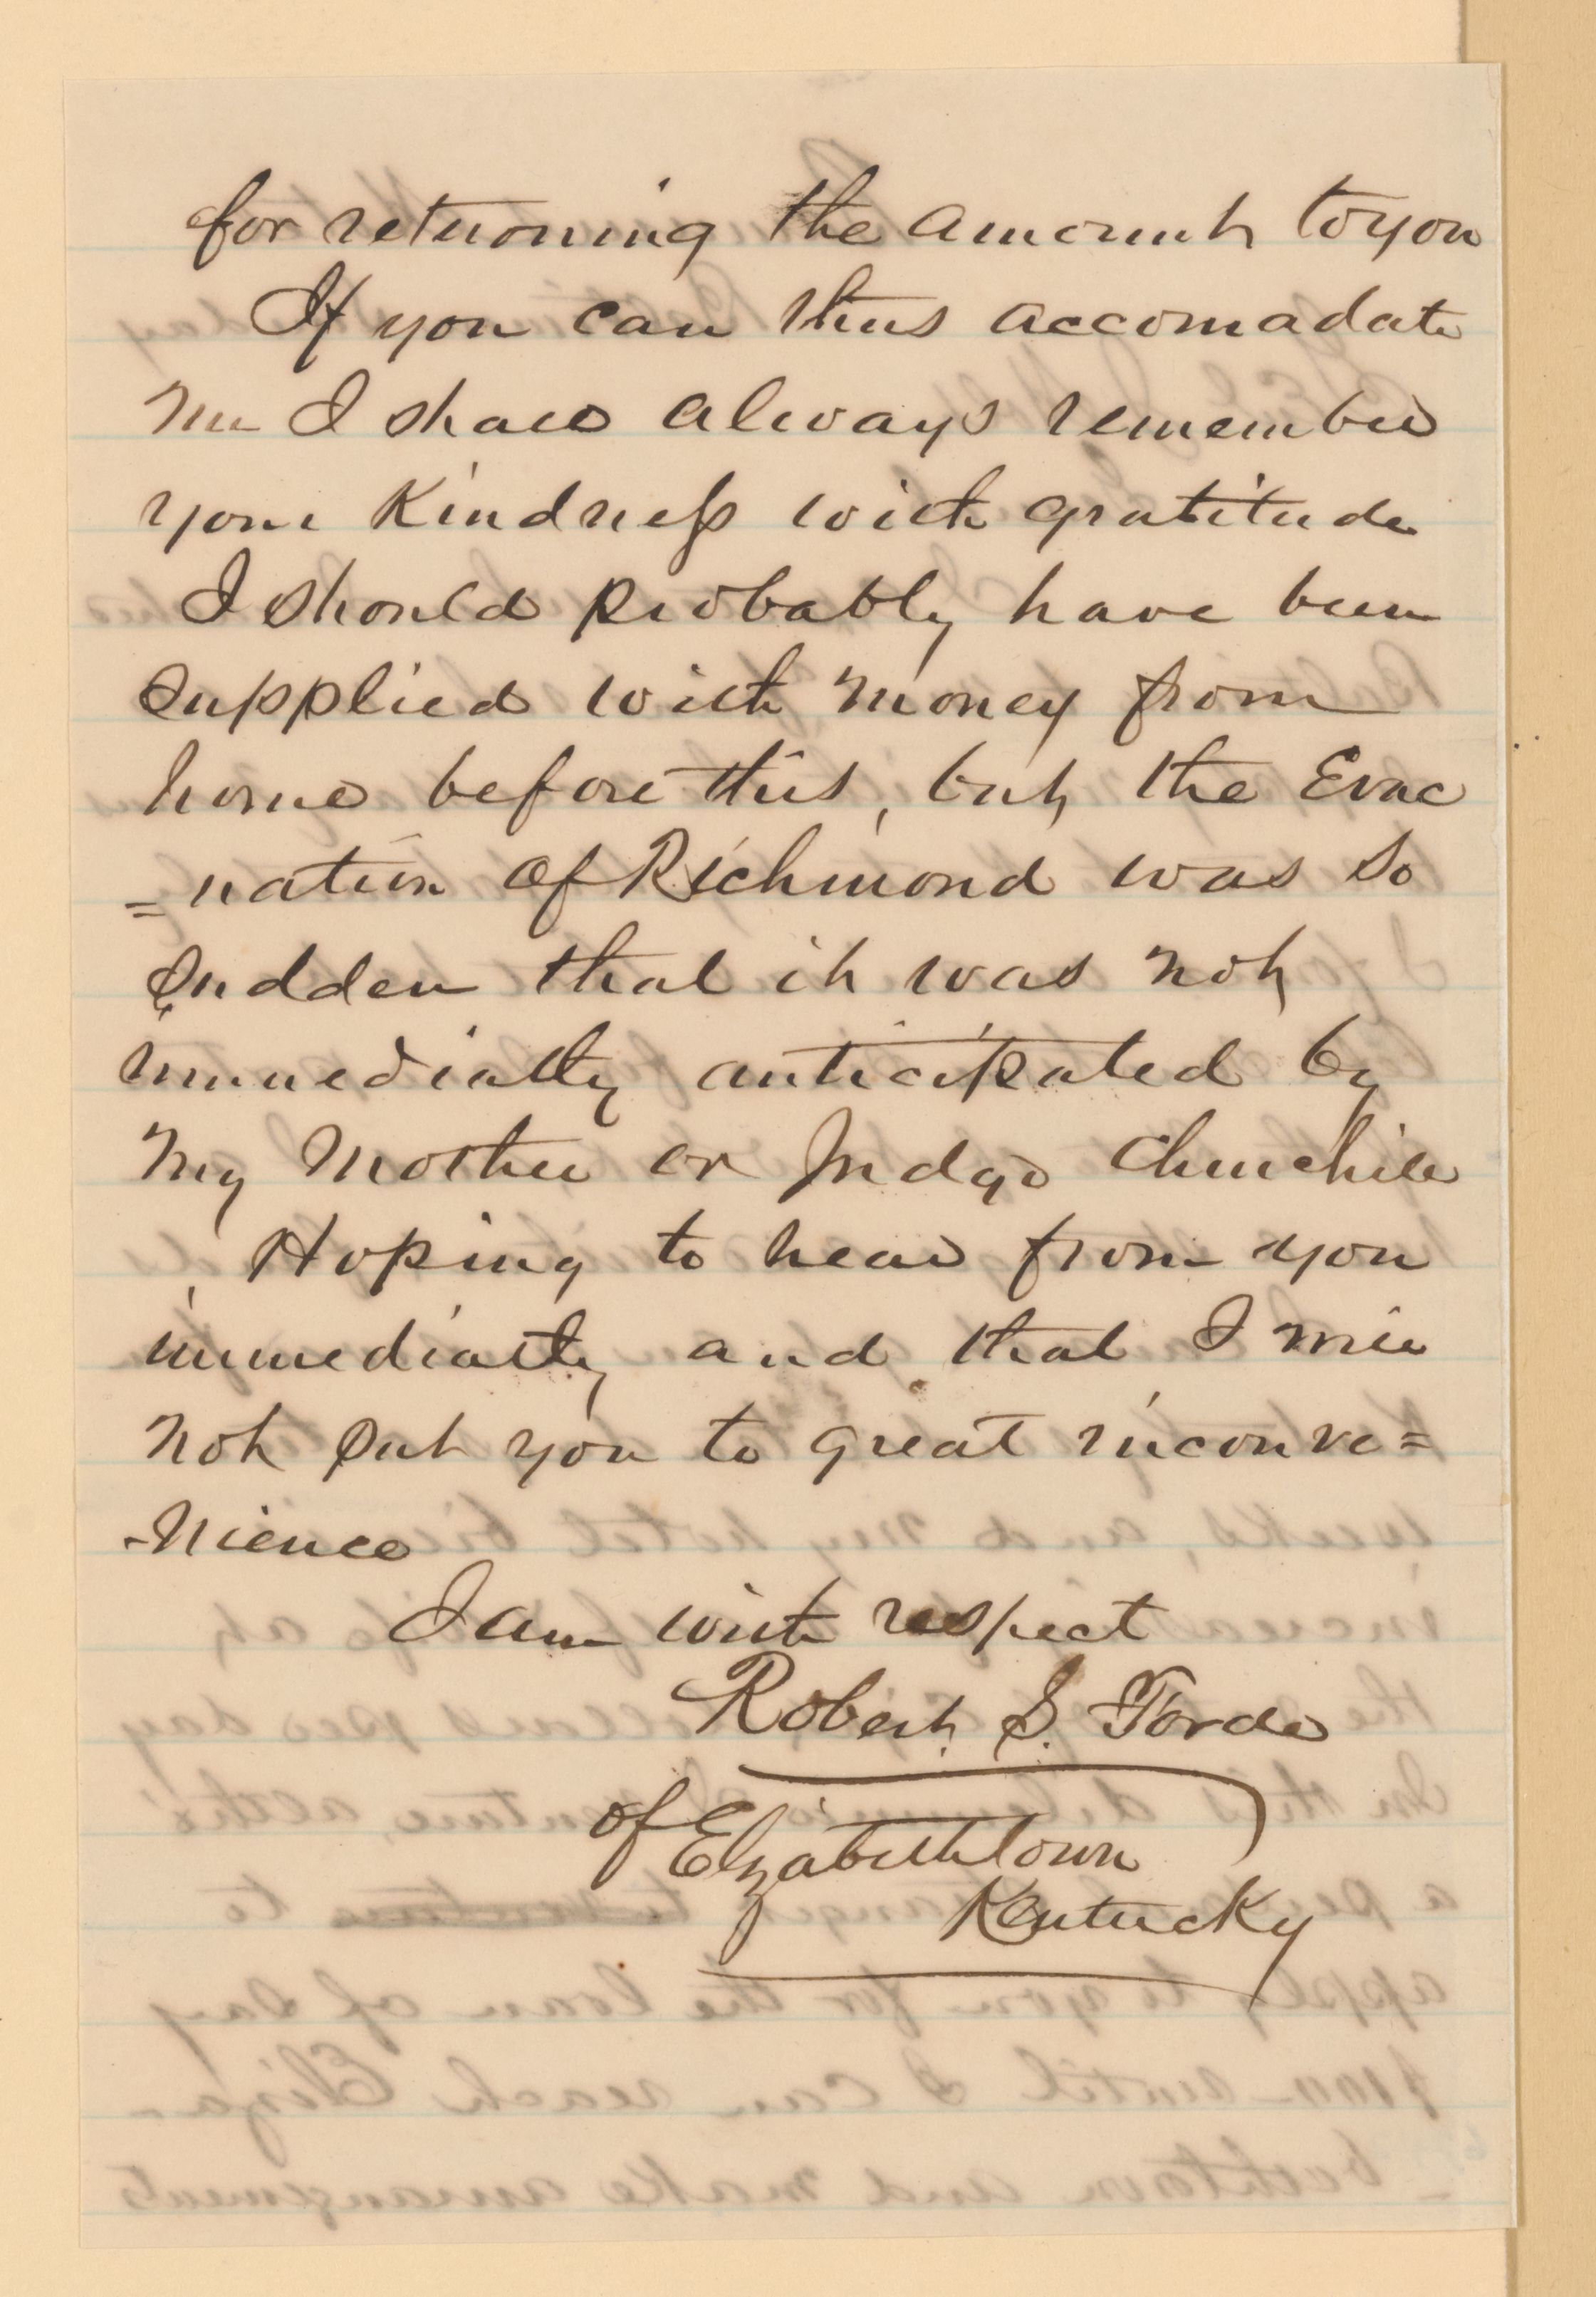 for returning the amount to you
If you can thus accomadate
me I shall always remember
your Kindness with gratitude
I should probably have been
supplied with money from
home before this, but the Evac
=uation of Richmond was so
sudden that it was not
immediatly anticipated by
my Mother or Judge Churchill
Hoping to hear from you
immediatly and that I will
not put you to great inconve=
-nience
I am with respect
Robert S. Forde
of Elizabethtown
Kentucky